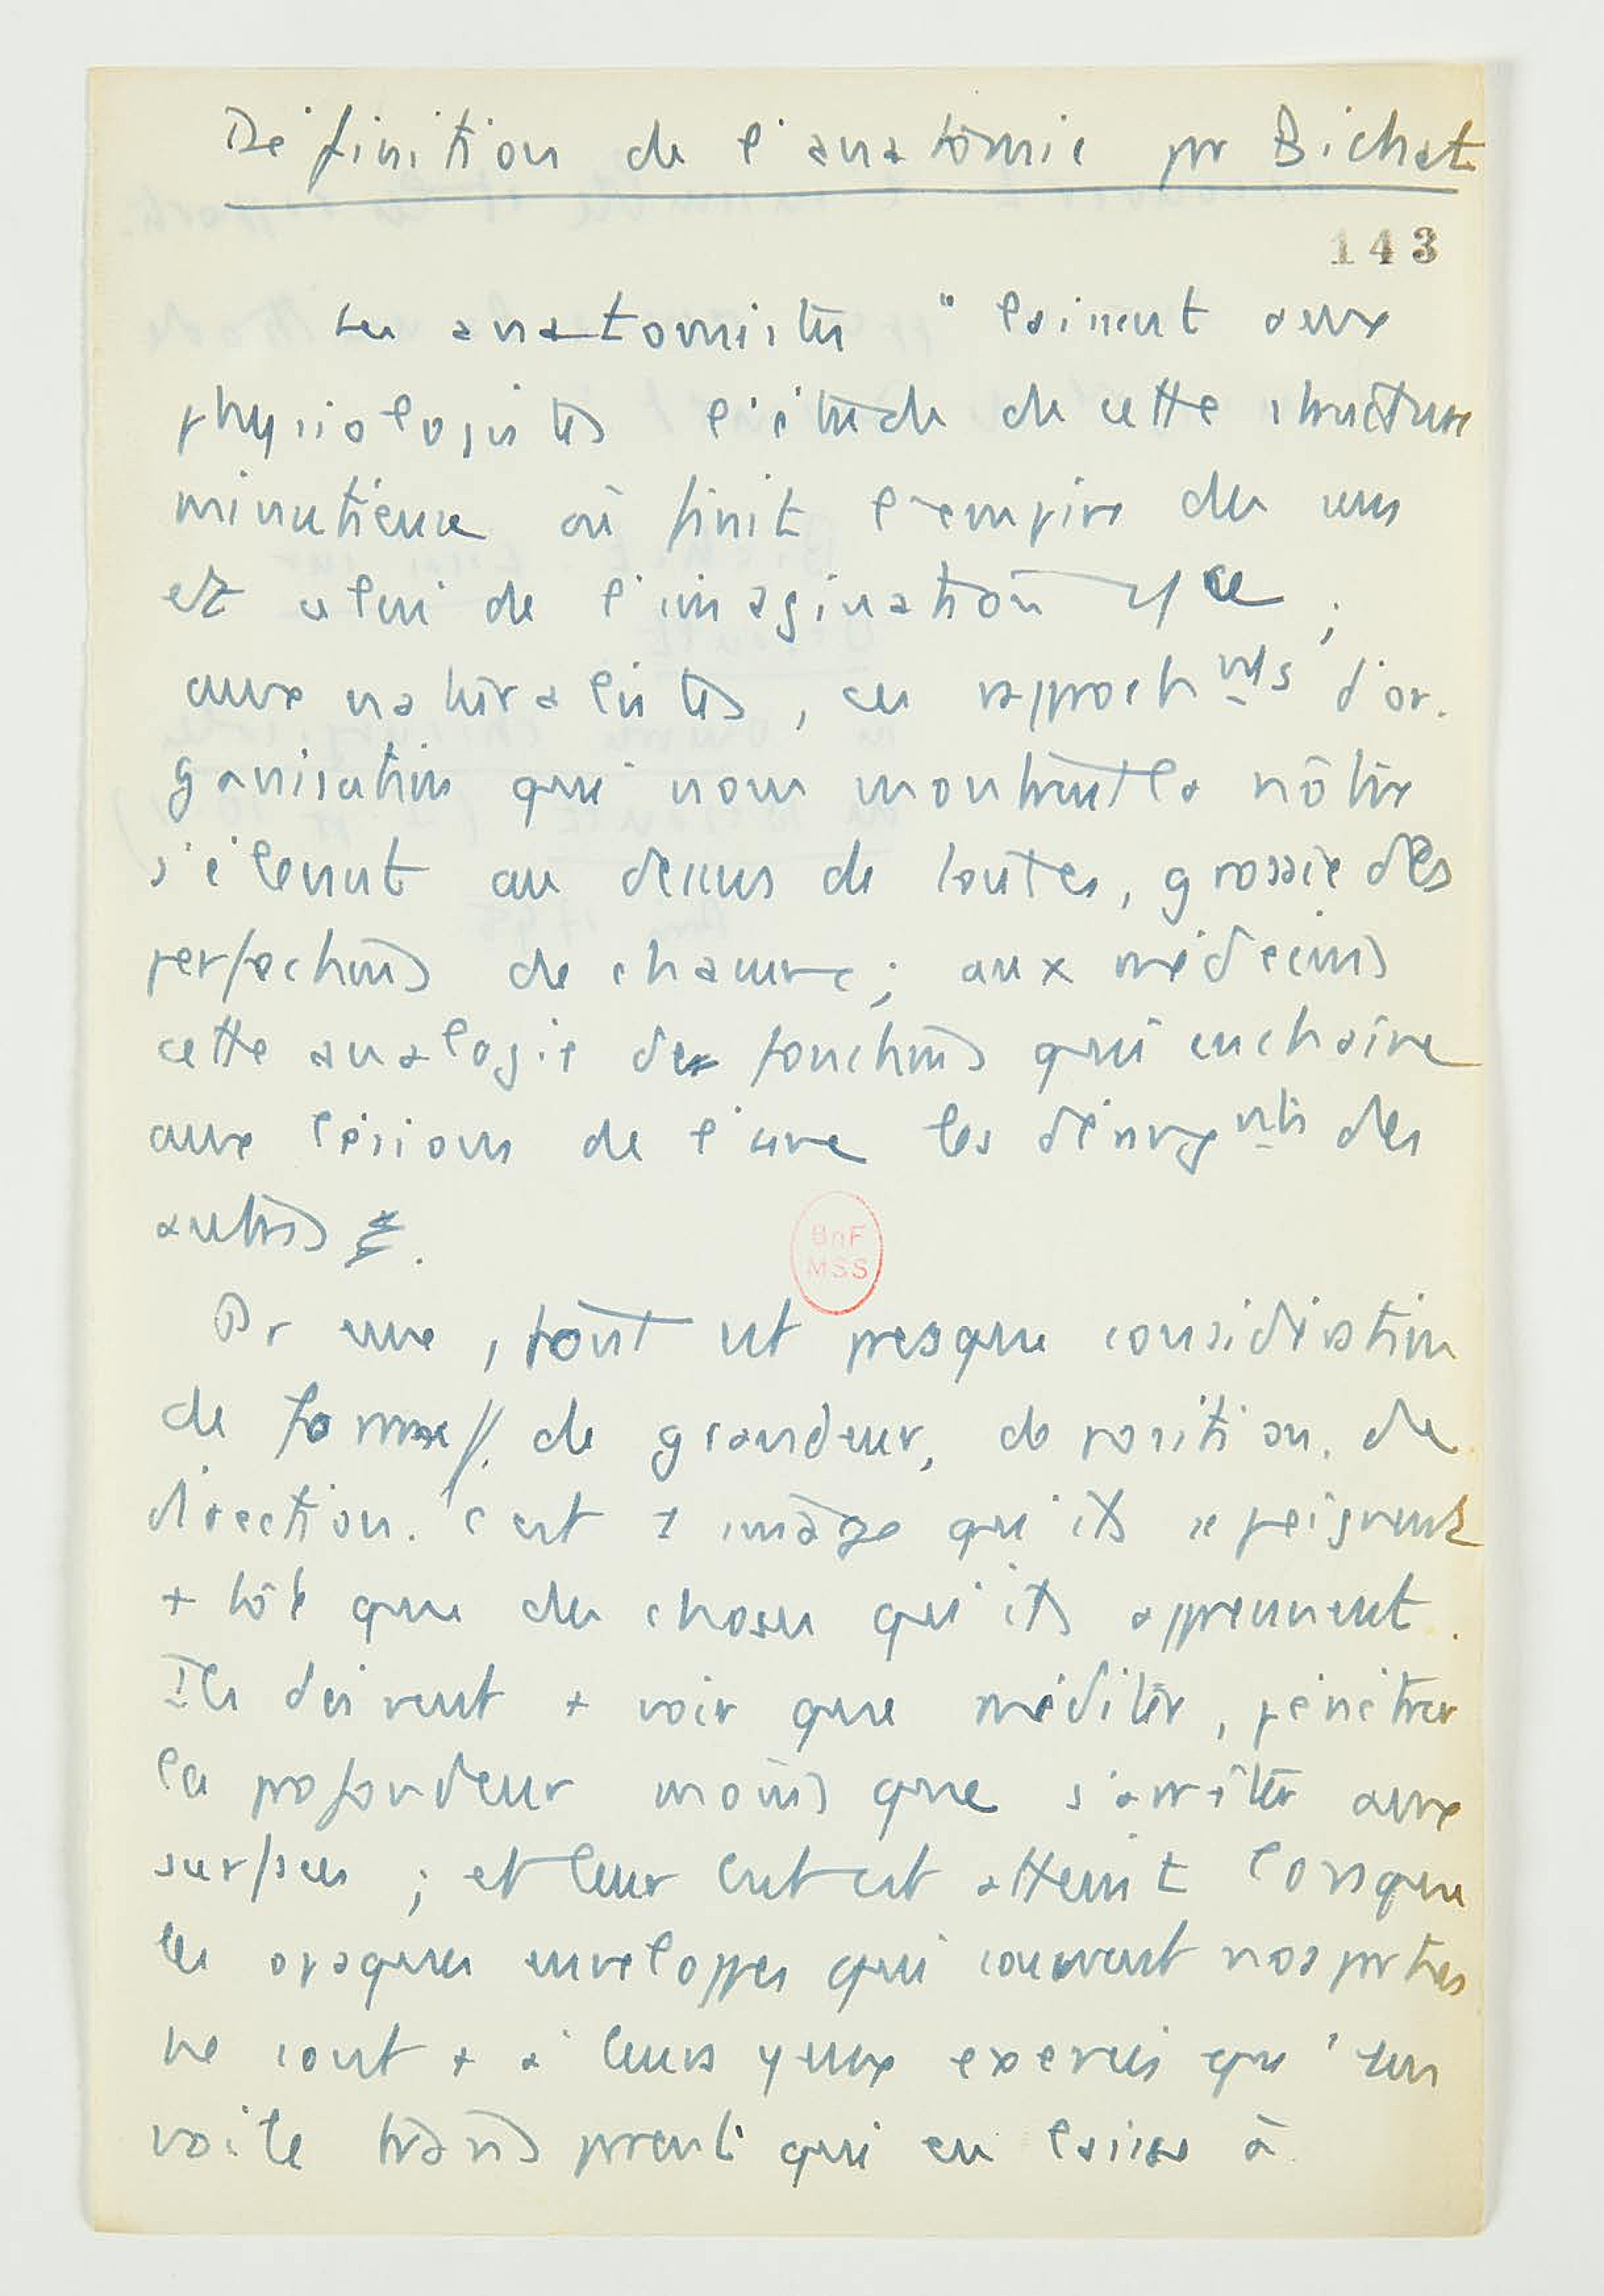 Définition de l'anatomie pr Bichat
143
Les anatomistes " laissent aux
physiologistes l'étude de cette structure
minutieuse où finit l'empire des sens
et celui de l'imagination ce ;
aux naturalistes, ces rapprochmts d'or-
ganisation qui nous montrent la nôtre
s'élevant au dessus de toutes, grossie des
perfections de chacune ; aux médecins
cette analogie des fonctions qui enchaîne
aux lésions de l'une les dérangmts des
autres.
Pr eux, tout est presque considération
de forme, de grandeur, de position, de
direction. C'est 1 image qu'ils se peignent
+ tôt que des choses qu'ils apprennent.
Ils doivent + voir que méditer, pénétrer
la profondeur moins que s'arrêter aux
surfaces ; et leur but est atteint lorsque
les opaques enveloppes qui couvrent nos prties
ne sont + à leurs yeux exercés qu'un
voile transprent qui en laisse à
BnF
MSS